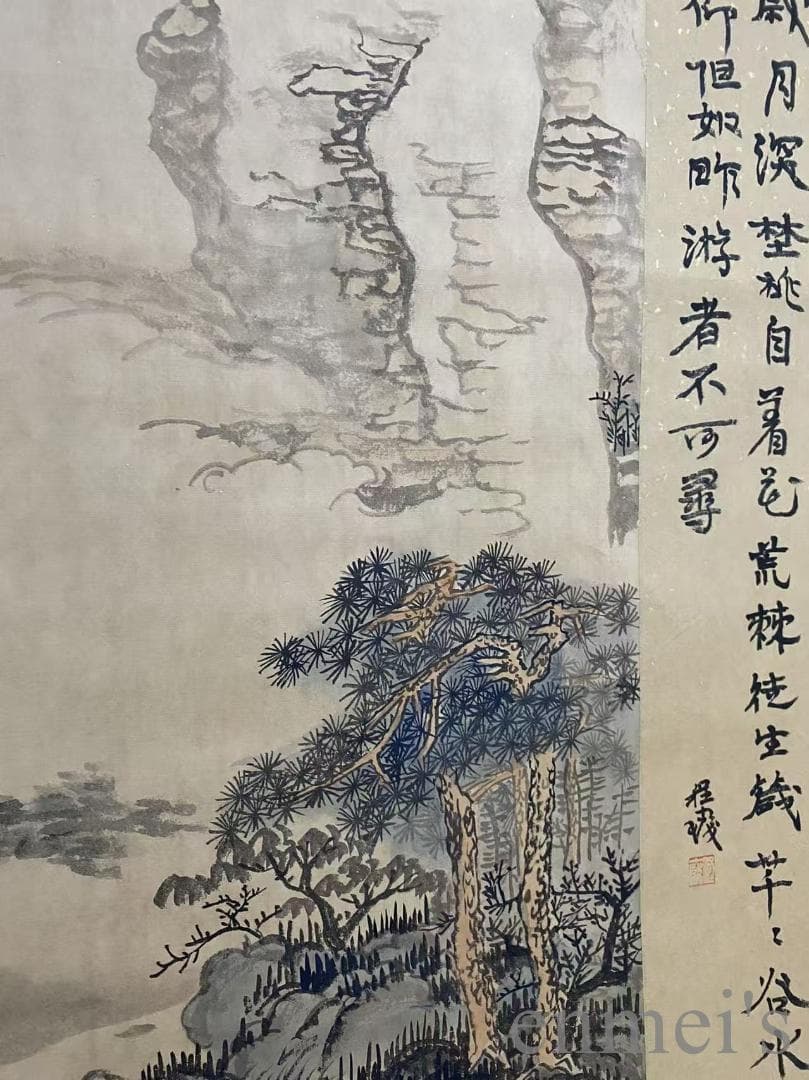 歲月深埜桃自着花荒棘徒生芊〻谷水
仰但如昨游者不可尋
enmei's